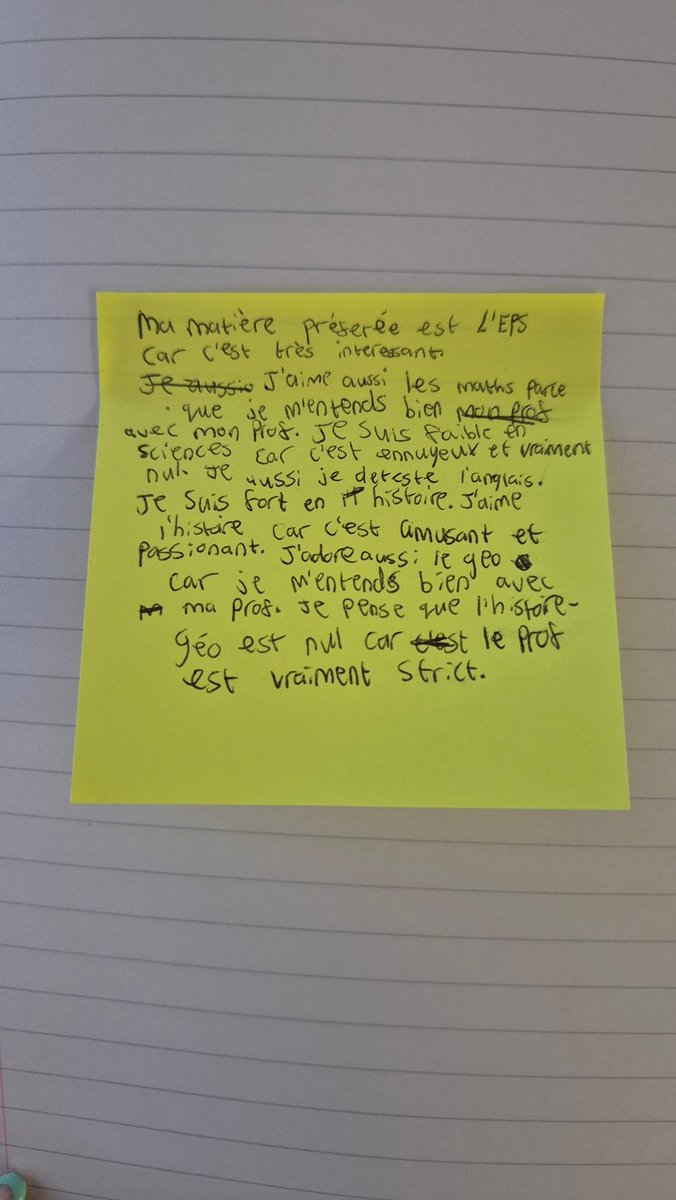 Ma matière préferée est L'EPS
car c'est très interessant.
Je aussi J'aime aussi les maths parce
que je m'entends bien mon prof
avec mon prof. Je suis faible en
sciences car c'est ennuyeux et vraiment
nul. Je aussi je deteste l'anglais.
Je suis fort en histoire. J'aime
l'histoire car c'est amusant et
passionant. J'adore aussi le géo
car je m'entends bien avec
ma prof. Je pense que l'histoire-
géo est nul car c'est le prof
est vraiment strict.